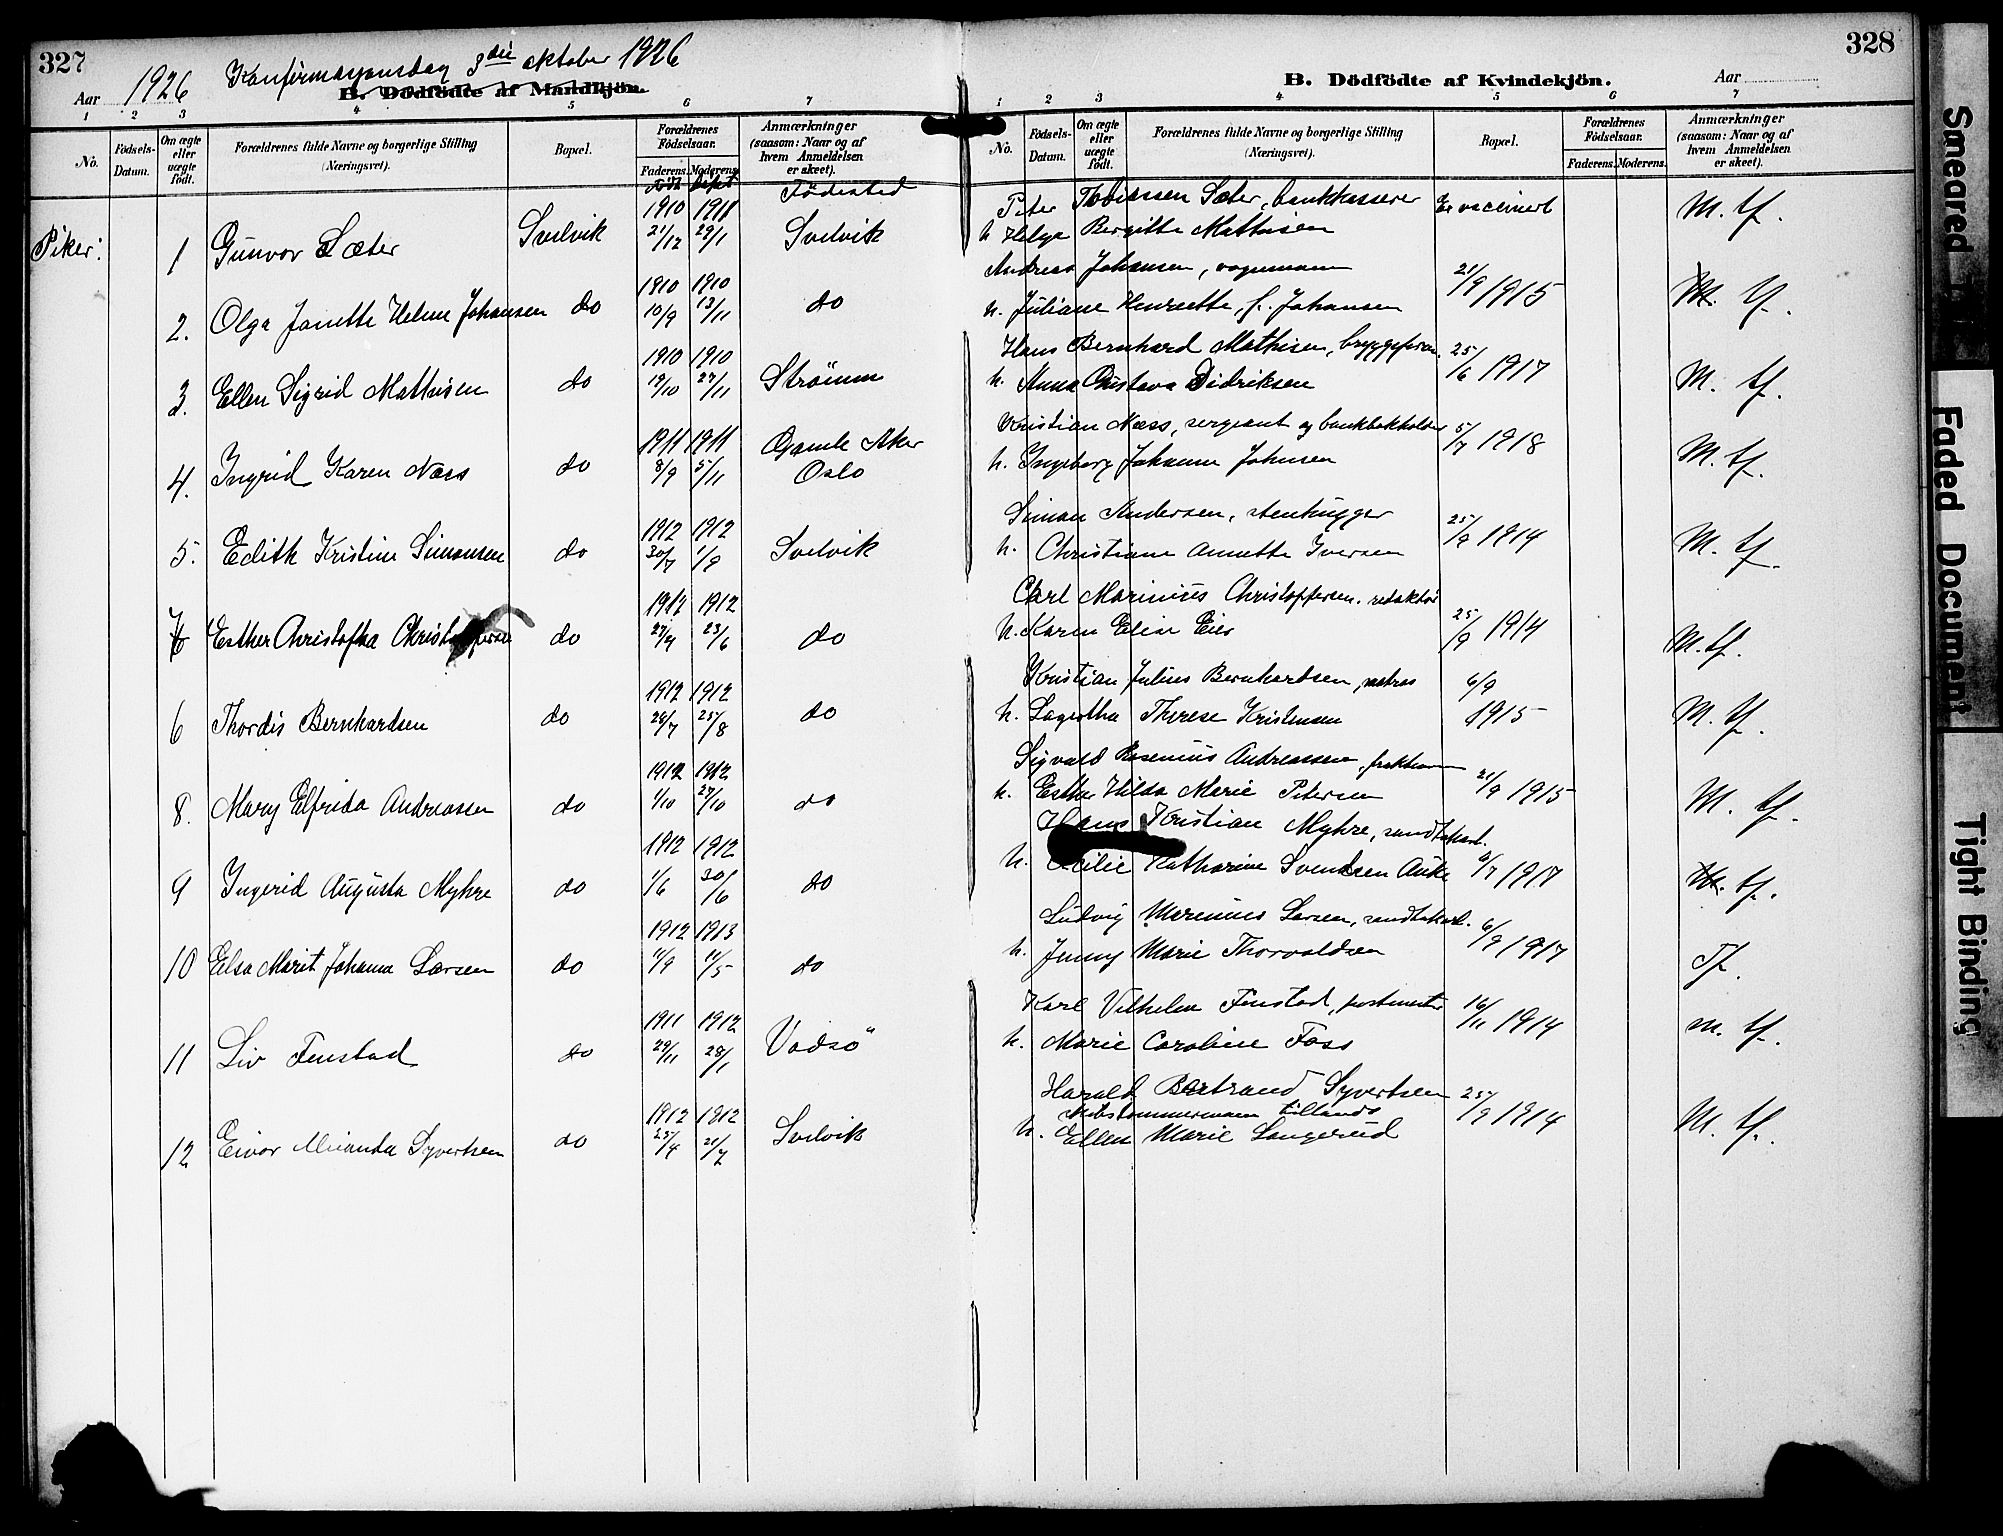 327
1926 Konfirmasjonsdag 3die oktober 1926
Aar
B. Dödfödte af Mandkjön.
1 2 3 4 5 6 7
No.
Födsels-Datum.
Om ægte eller uægte födt.
Forældrenes fulde Navne og borgerlige Stilling (Næringsvei).
Bopæl.
Forældrenes Födselsaar.
Faderens. Moderens.
Anmærkninger (saasom: Naar og af hvem Anmeldelsen er skeet).
Født Døpt Födested
Piker:
1 Gunvor Sæter Svelvik 1910 21/12 1911 29/1 Svelvik
2. Olga Janette Helene Johansen do 1910 10/9 1910 13/11 do
3. Ellen Sigrid Mathisen do 1910 19/10 1910 27/11 Strömm
4. Ingrid Karen Næss do 1911 8/9 1911 5/11 Gamle Aker Oslo
5. Edith Kristine Simonsen do 1912 30/7 1912 1/9 Svelvik
Esther Christofha Christoffersen do 1912 1912 23/6 do
6 Thordis Bernhardsen do 1912 28/7 1912 25/8 do
8. Mary Elfrida Andreassen do 1912 1/10 1912 27/10 do
9 Ingerid Augusta Myhre do 1912 1/6 1912 30/6 do
10 Elsa Marit Johanna Larsen do 1912 11/9 1913 11/5 do
11 Liv Finstad do 1911 29/11 1912 28/1 Vadsö
12 Eivor Miranda Syvertsen do 1912 25/4 1912 21/7 Svelvik
328
B. Dödfödte af Kvindekjön.
Aar
1 2 3 4 5 6 7
No.
Födsels-Datum.
Om ægte eller uægte födt.
Forældrenes fulde Navne og borgerlige Stilling (Næringsvei).
Bopæl.
Forældrenes Födselsaar.
Faderens. Moderens.
Anmærkninger (saasom: Naar og af hvem Anmeldelsen er skeet).
Peter Tobiassen Sæter, bankkasserer Er vaccinert M. tf.
h. Helga Bergitte Mathisen
Andreas Johansen, vognmann 21/9 1915 M. tf.
h. Juliane Henriette, f. Johansen
Hans Bernhard Mathisen, 25/6 1917 M. tf.
h. Anna Gustava Didriksen
Kristian Næss, sergeant og bankbokholder 5/7 1918 M. tf.
h. Ingeborg Johanne Johnsen
Simon Andersen, stenhugger 25/9 1914 M. tf.
h. Christiane Annette Iversen
Carl Marinius Christoffersen, redaktör 25/9 1914 M. tf.
h. Karen Elise Eies
Kristian Julius Bernhardsen, matros 6/9 1915 M. tf.
h. Lagertha Therese Kristensen
Sigvald Rasenius Andreassen, 21/9 1915 M. tf.
h. Esther Hilda Marie Petersen
Hans Kristian Myhre, sandtakarb. 1917 M. tf.
h. Cecilie Katharine Svendsen Auke
Ludvig Marinius Larsen, sandtakarb. 6/9 1917 Tf.
h. Jenny Marie Thorvaldsen
Karl Vilhelm Finstad, postmester 16/11 1914 m. tf.
h. Marie Caroline Foss
Harald Bertrand Syvertsen 25/9 1914 M. tf.
h. Ellen Marie Langerud
Smeared
Faded Document
Tight Binding